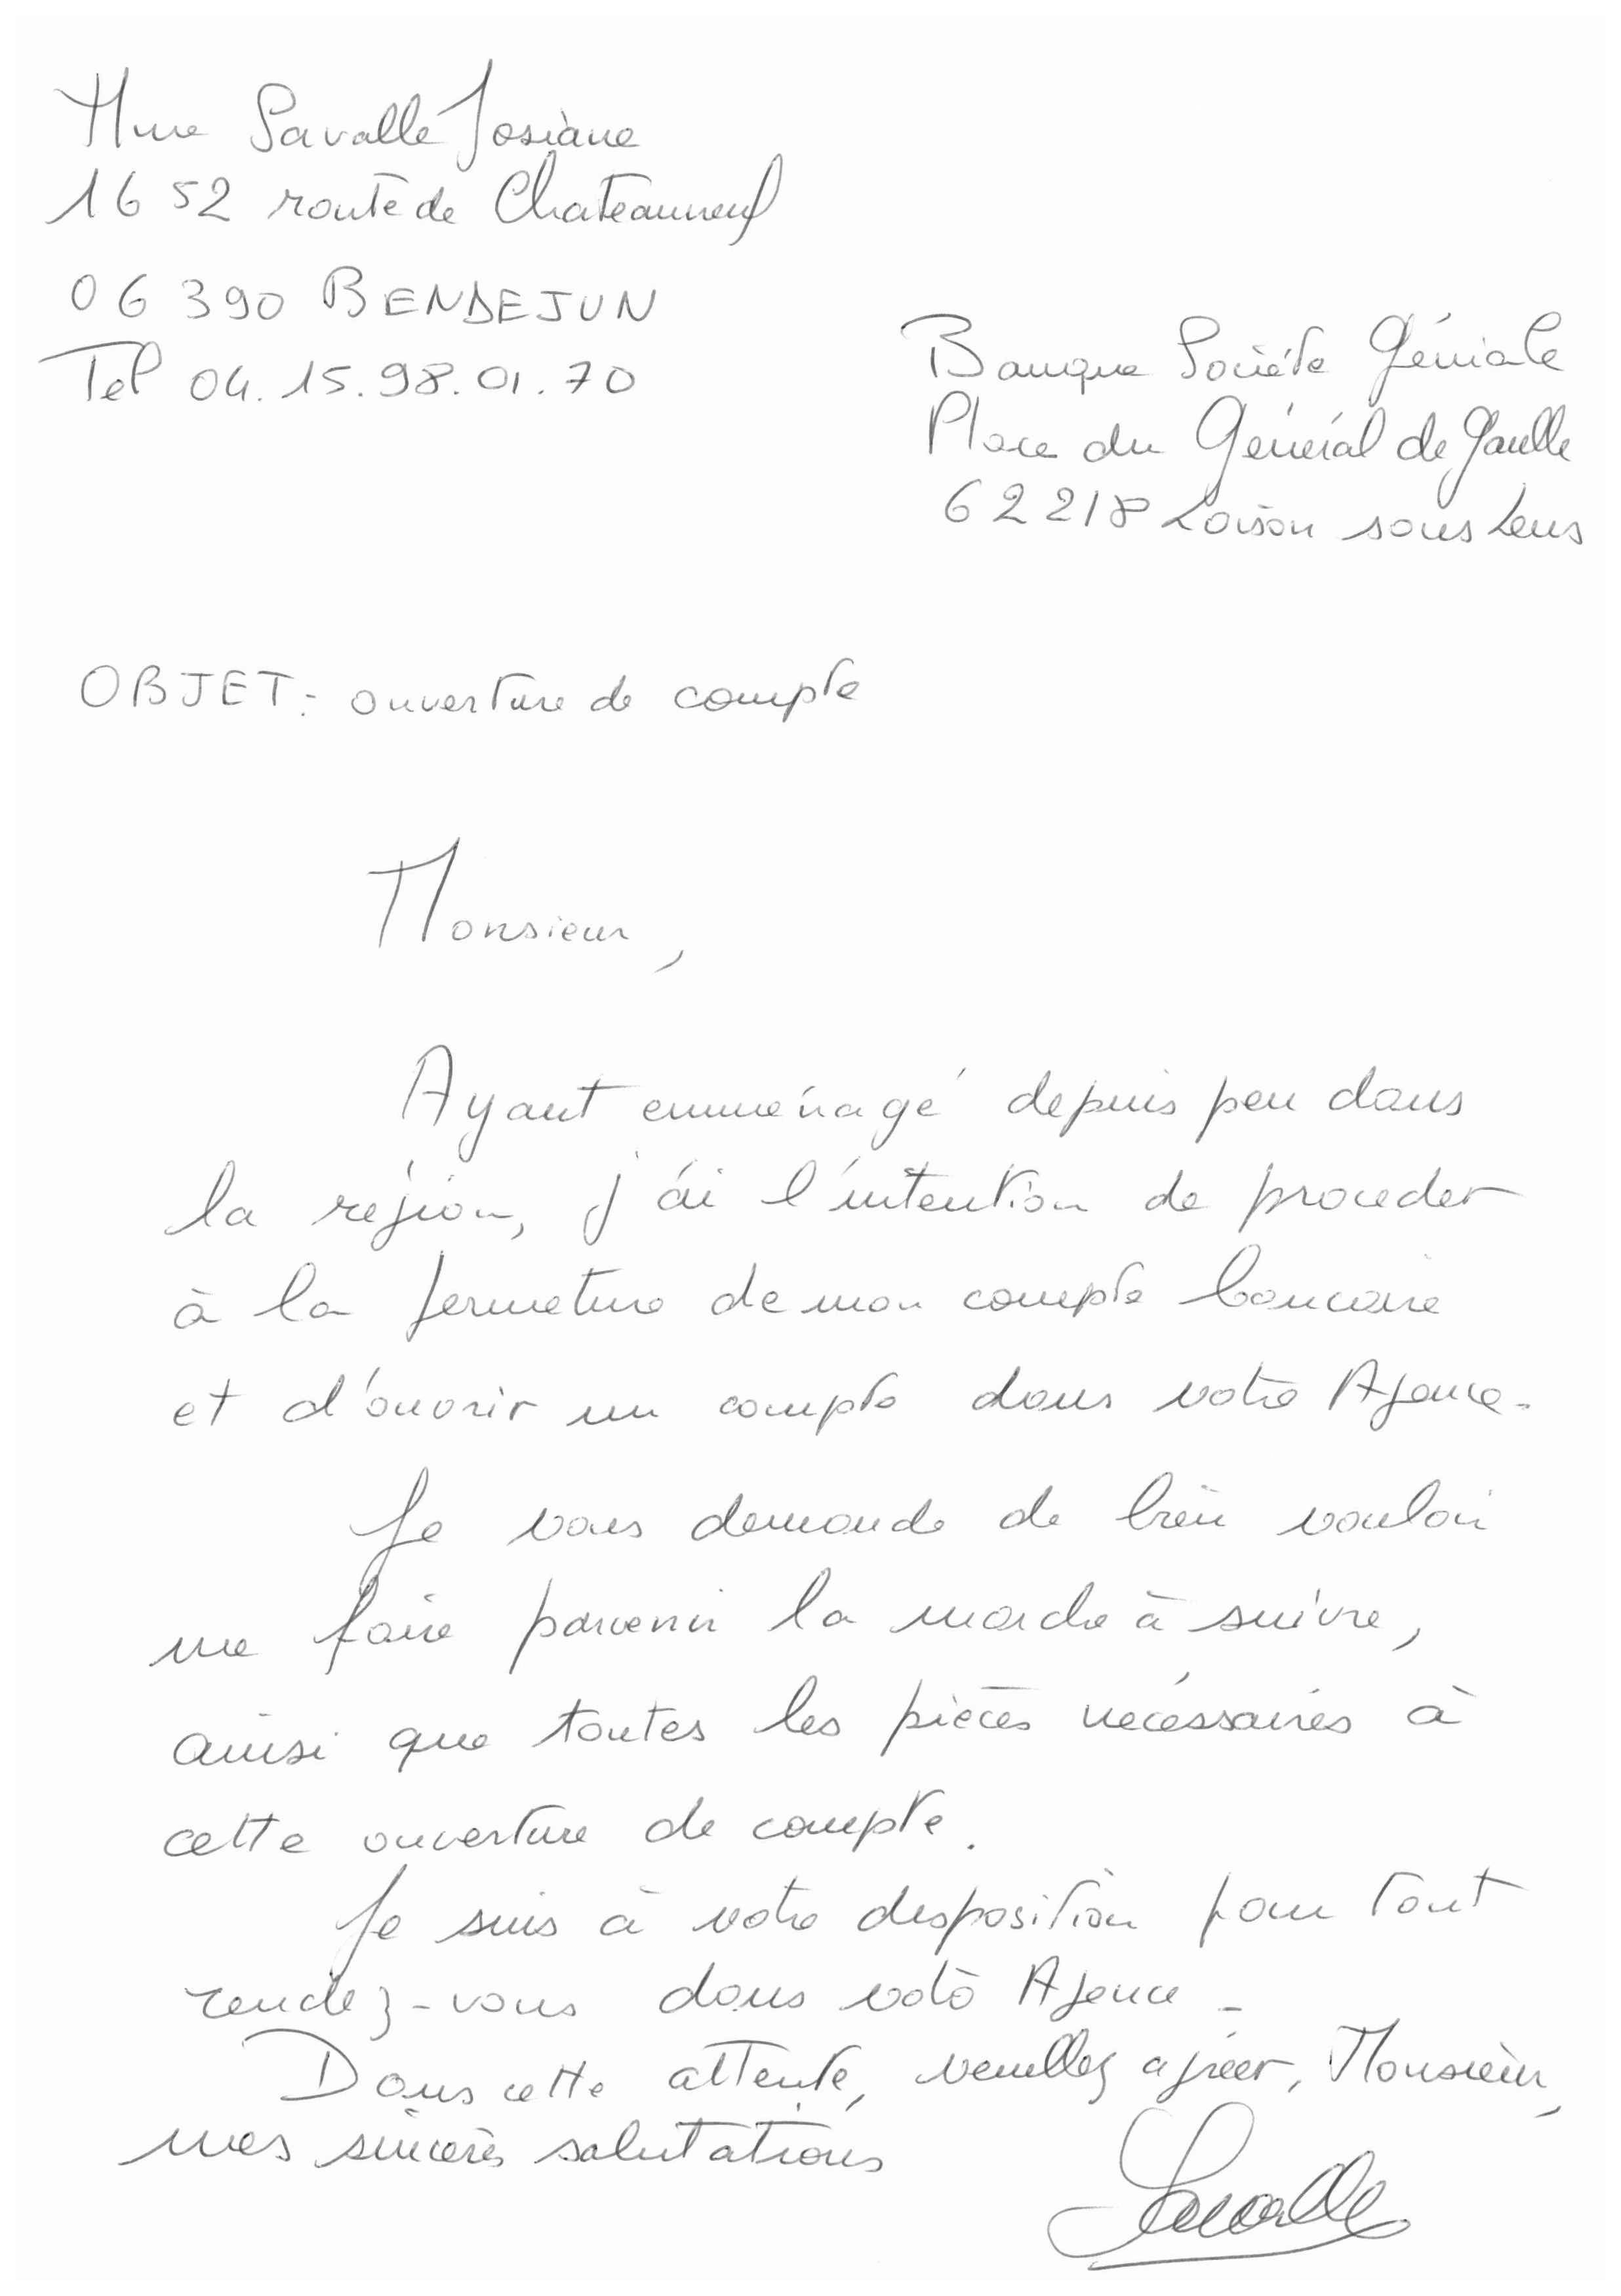 Mme Savalle Josiane
1652 route de Chateauneuf
06390 BENDEJUN
Tel 04.15.98.01.70
Banque Société Géniale
Place du Général de Gaulle
62218 Loison sous Lens
OBJET : ouverture de compte
Monsieur,
Ayant emménagé depuis peu dans
la région, j'ai l'intention de proceder
à la fermeture de mon compte bancaire
et d'ouvrir un compte dans votre Agence.
Je vous demande de bien vouloir
me faire parvenir la marche à suivre,
ainsi que toutes les pièces nécessaires à
cette ouverture de compte.
Je suis à votre disposition pour tout
rendez-vous dans votre Agence.
Dans cette attente, veuillez agréer, Monsieur,
mes sincères salutations
Savalle